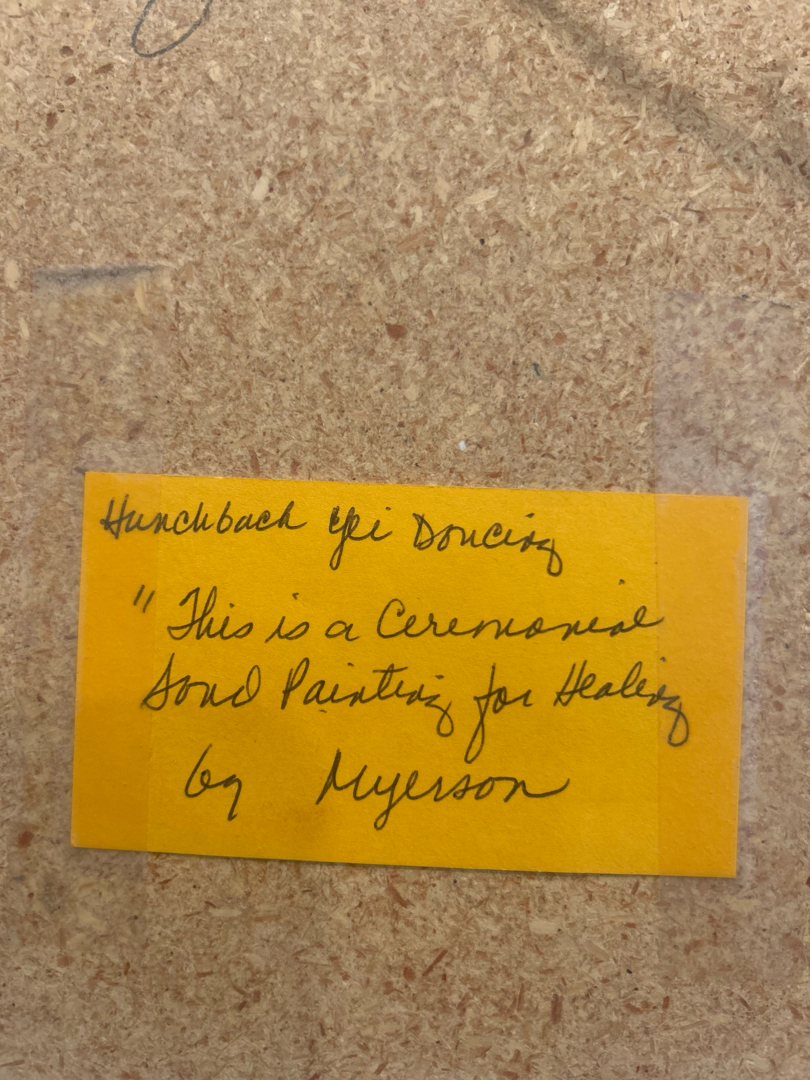 Hunchback Yei Dancing
" This is a Ceremonial
Sand Painting for Healing
by Myerson